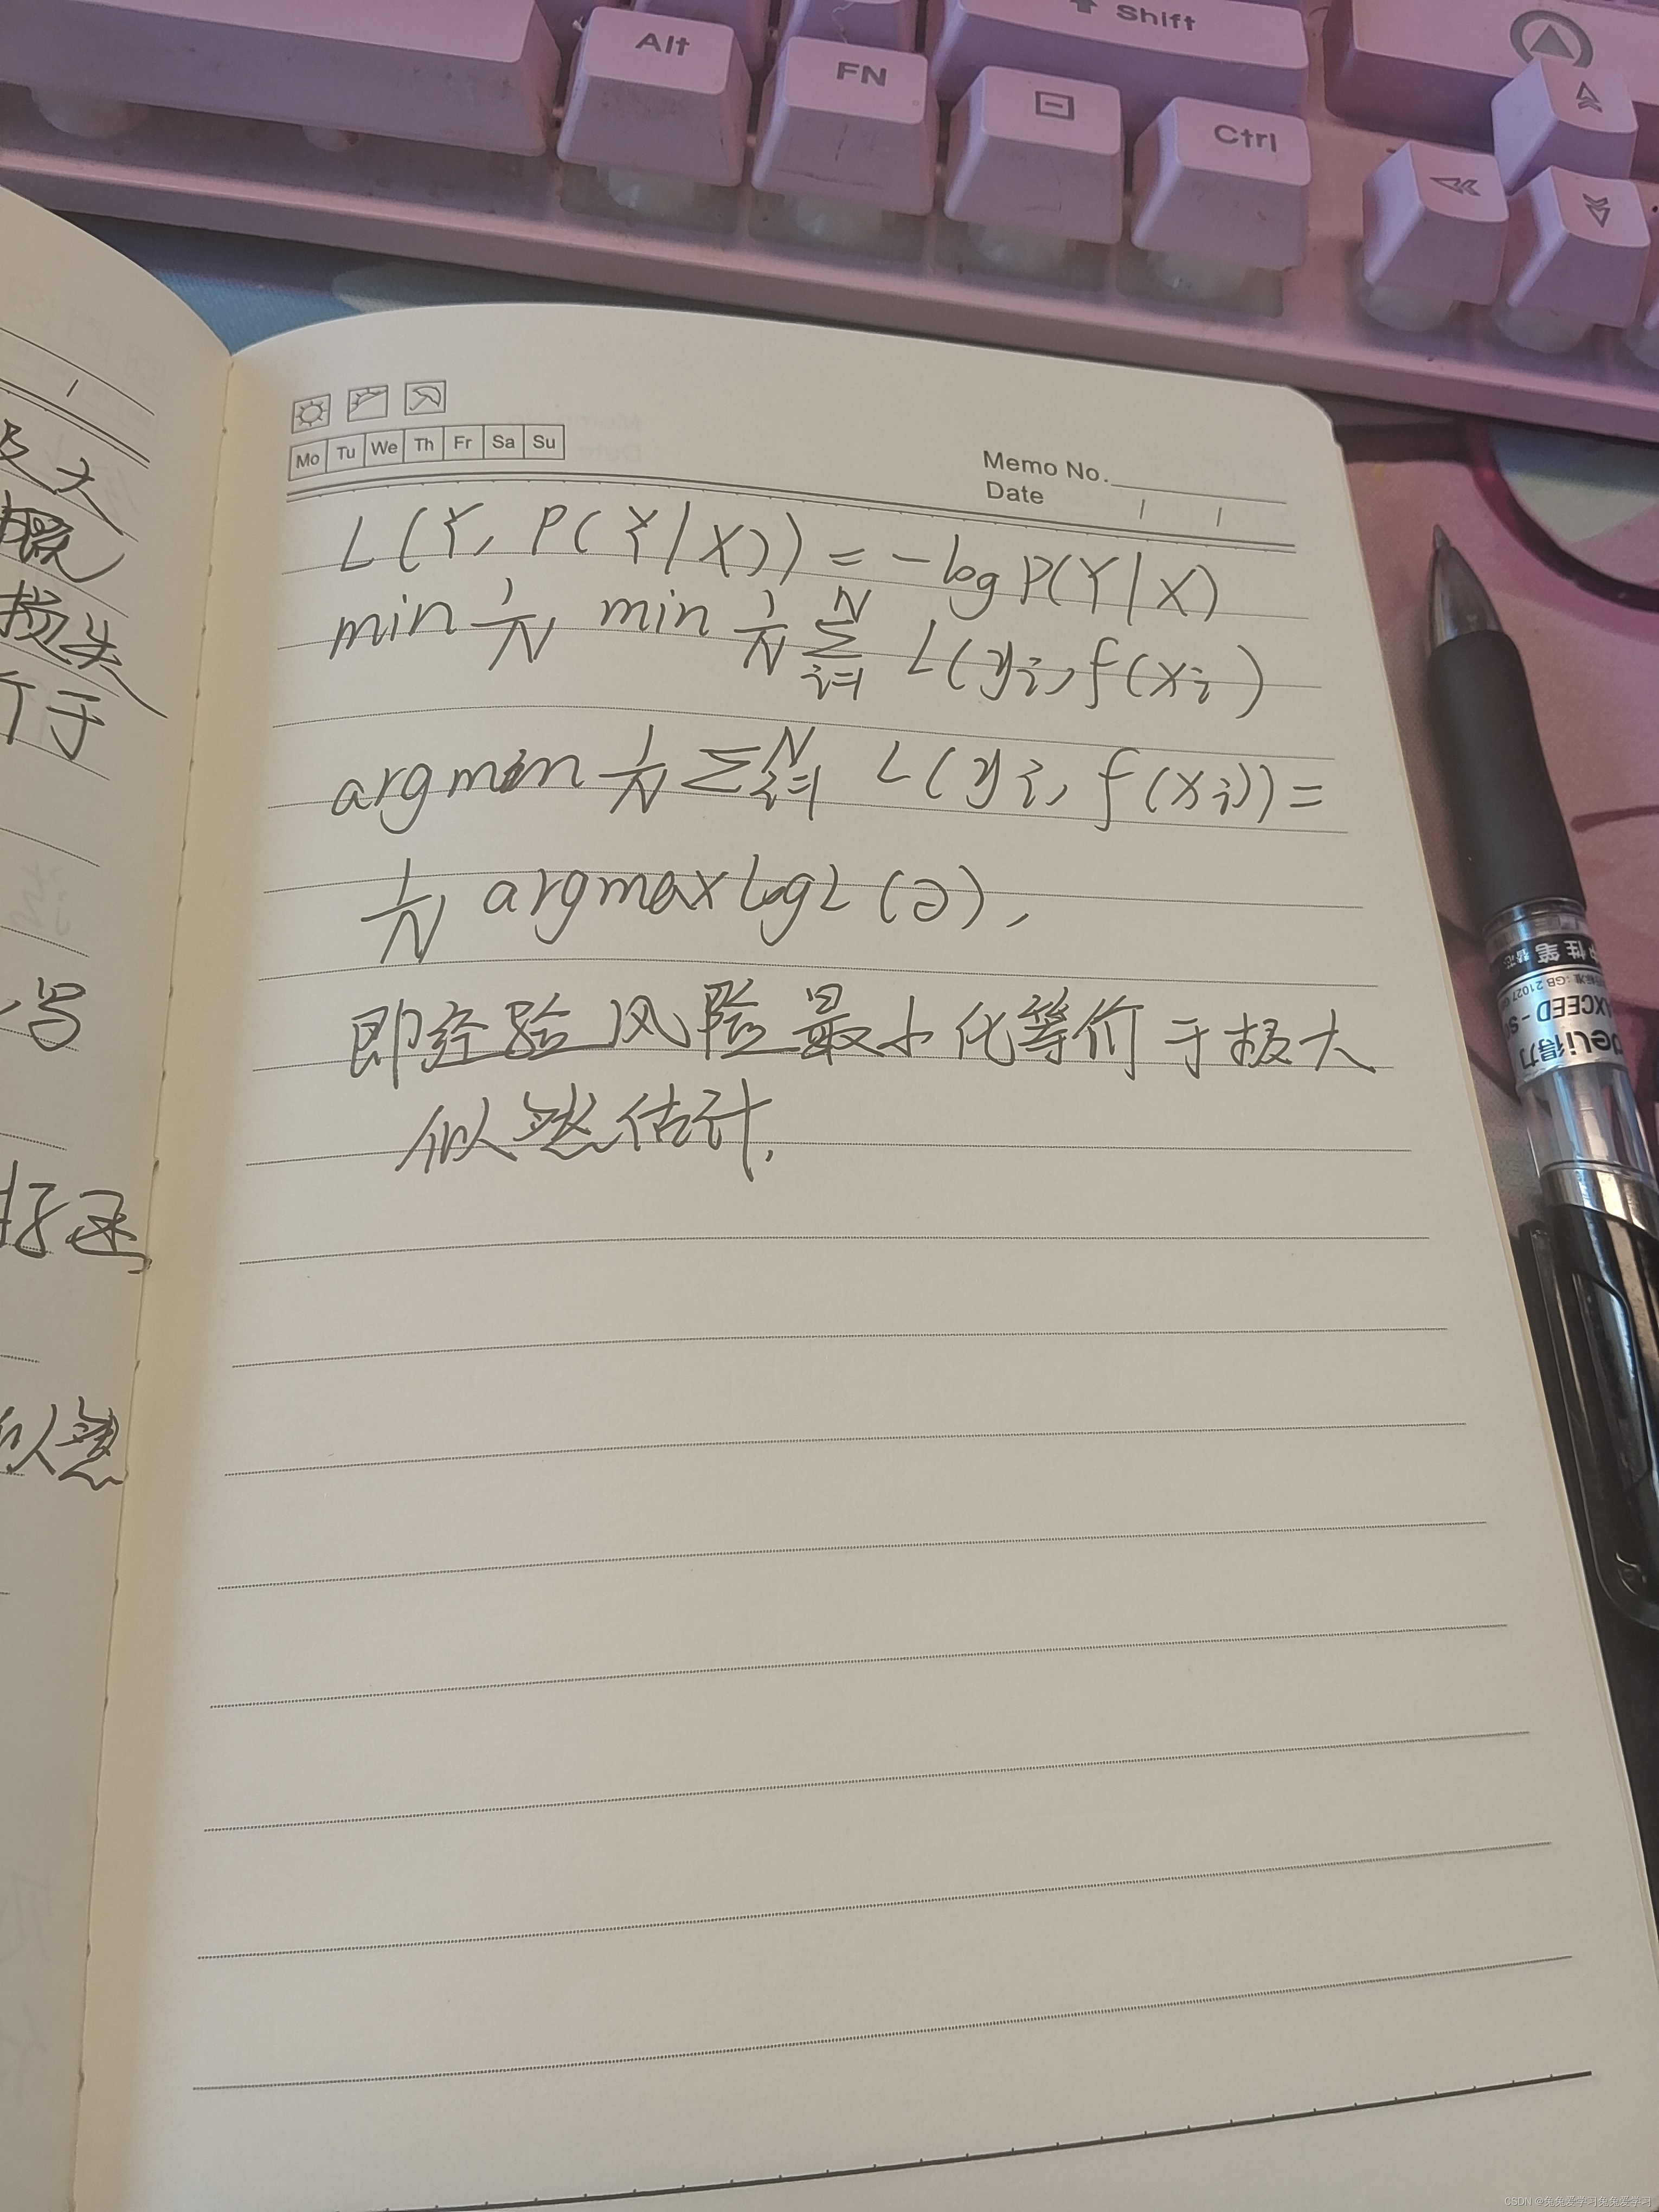 Shift
Alt
FN
Ctrl
Mo Tu We Th Fr Sa Su
Memo No.
Date / /
L(Y, P(Y|X)) = -log P(Y|X)
min 1/N min 1/N Σ_{i=1}^{N} L(yi, f(xi)
argmin 1/N Σ_{i=1}^{N} L(yi, f(xi)) =
1/N argmax log L(∂),
即经验风险最小化等价于极大
似然估计.
大
损失
于
似然
deli得力
CSDN @兔兔爱学习兔兔爱学习